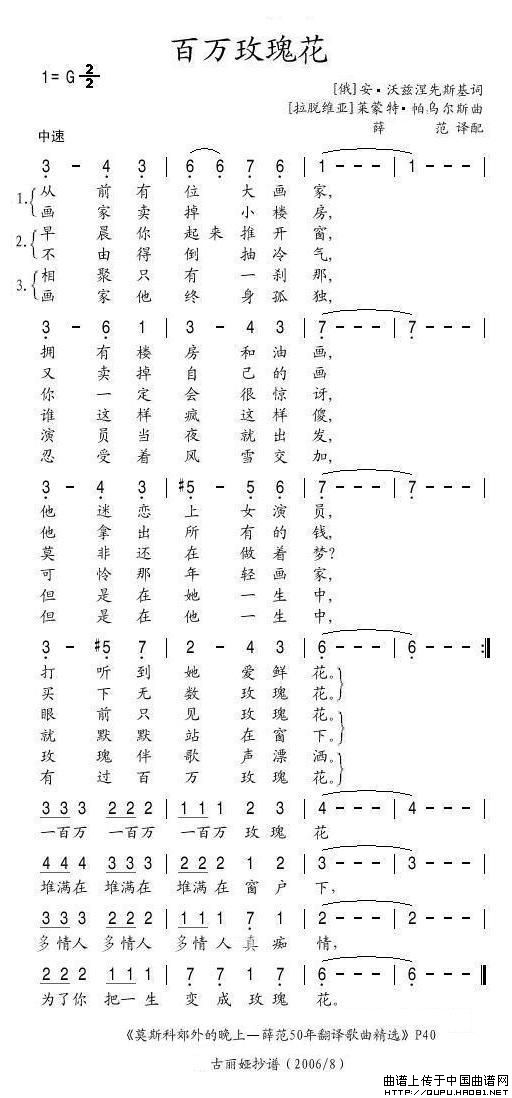 百万玫瑰花
1= G 2/2
[俄]安·沃兹涅先斯基词
[拉脱维亚]莱蒙特·帕乌尔斯曲
薛 范 译配
中速
3 - 4 3 | 6 6 7 6 | 1 - - - | 1 - - - |
1. 从前有位大画家,
画家卖掉小楼房,
2. 早晨你起来推开窗,
不由得倒抽冷气,
3. 相聚只有一刹那,
画家他终身孤独,
3 - 6 1 | 3 - 4 3 | 7 - - - | 7 - - - |
拥有楼房和油画,
又卖掉自己的画
你一定会很惊讶,
谁这样疯这样傻,
演员当夜就出发,
忍受着风雪交加,
3 - 4 3 | #5 - 5 6 | 7 - - - | 7 - - - |
他迷恋上女演员,
他拿出所有的钱,
莫非还在做着梦?
可怜那年轻画家,
但是在她一生中,
但是在他一生中,
3 - #5 7 | 2 - 4 3 | 6 - - - | 6 - - - :||
打听到她爱鲜花。
买下无数玫瑰花。
眼前只见玫瑰花。
就默默站在窗下。
玫瑰伴歌声漂洒。
有过百万玫瑰花。
3 3 3 2 2 2 | 1 1 1 2 3 | 4 - - - | 4 - - - |
一百万 一百万 一百万 玫瑰花
4 4 4 3 3 3 | 2 2 2 1 2 | 3 - - - | 3 - - - |
堆满在 堆满在 堆满在窗户下,
3 3 3 2 2 2 | 1 1 1 7 1 | 2 - - - | 2 - - - |
多情人 多情人 多情人真痴情,
2 2 2 1 1 1 | 7 7 1 7 | 6 - - - | 6 - - - ||
为了你 把一生 变成玫瑰花。
《莫斯科郊外的晚上—薛范50年翻译歌曲精选》P40
古丽娅抄谱(2006/8)
曲谱上传于中国曲谱网
HTTP://QUPU.HAO81.NET